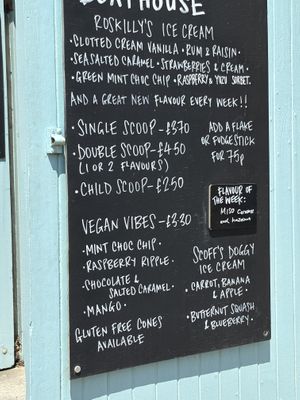 BOATHOUSE
ROSKILLY'S ICE CREAM
• CLOTTED CREAM VANILLA • RUM & RAISIN •
• SEA SALTED CARAMEL • STRAWBERRIES & CREAM •
• GREEN MINT CHOC CHIP • RASPBERRY & YUZU SORBET.
AND A GREAT NEW FLAVOUR EVERY WEEK!!
• SINGLE SCOOP - £3.70
• DOUBLE SCOOP - £4.50
(1 OR 2 FLAVOURS)
• CHILD SCOOP - £2.50
ADD A FLAKE
OR FUDGE STICK
FOR 75p
FLAVOUR OF
THE WEEK:
MISO CARAMEL
AND
VEGAN VIBES - £3.30
• MINT CHOC CHIP •
• RASPBERRY RIPPLE •
• CHOCOLATE &
SALTED CARAMEL •
• MANGO •
GLUTEN FREE CONES
AVAILABLE
SCOFF'S DOGGY
ICE CREAM
• CARROT, BANANA
& APPLE •
• BUTTERNUT SQUASH
& BLUEBERRY •